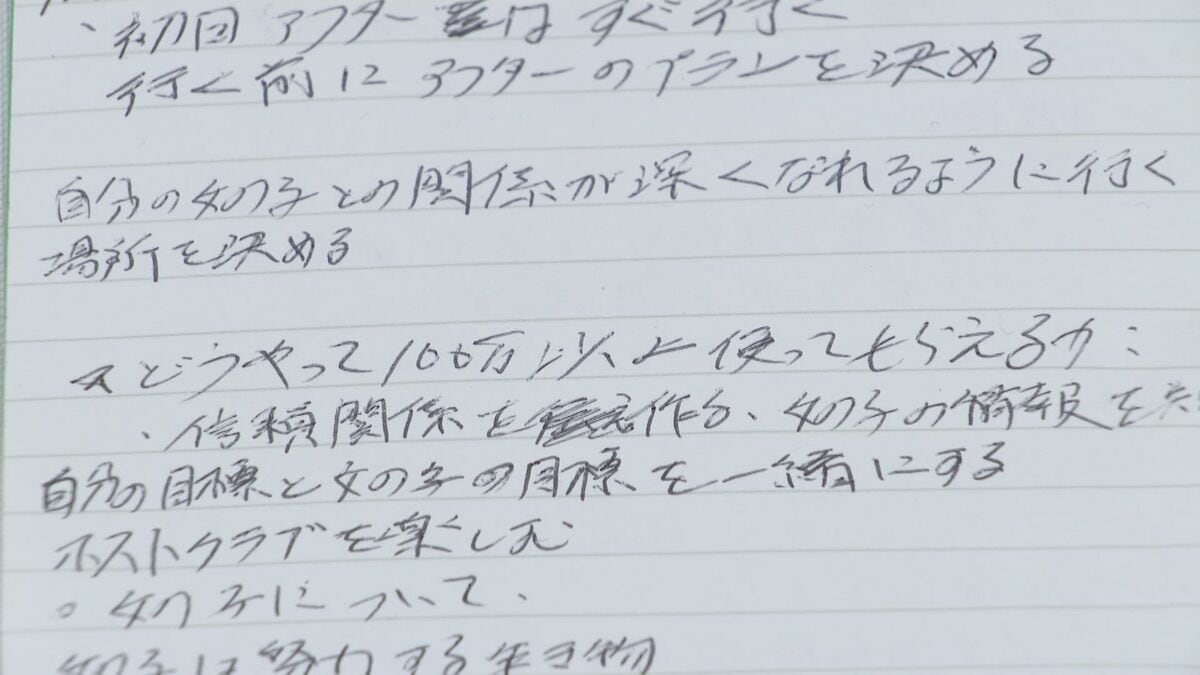 ・初回アフターはすぐ行く
行く前にアフターのプランを決める
自分の女の子との関係が深くなれるように行く
場所を決める
どうやって100万以上使ってもらえるか:
・信積関係を作る、女の子の情報を
自分の目標と女の子の目標を一緒にする
ホストクラブを楽しむ
○女の子について、
女の子は努力する生き物